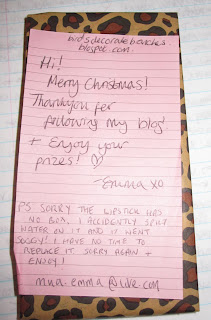 birdsdecoratebenches.
blogspot.com
Hi!
Merry Christmas!
Thankyou for
following my blog
+ Enjoy your
prizes! ♡
-Emma xo
PS SORRY THE LIPSTICK HAS
NO BOX. I ACCIDENTLY SPILT
WATER ON IT AND IT WENT
SOGGY! I HAVE NO TIME TO
REPLACE IT. SORRY AGAIN +
ENJOY!
mua-emma@live.com